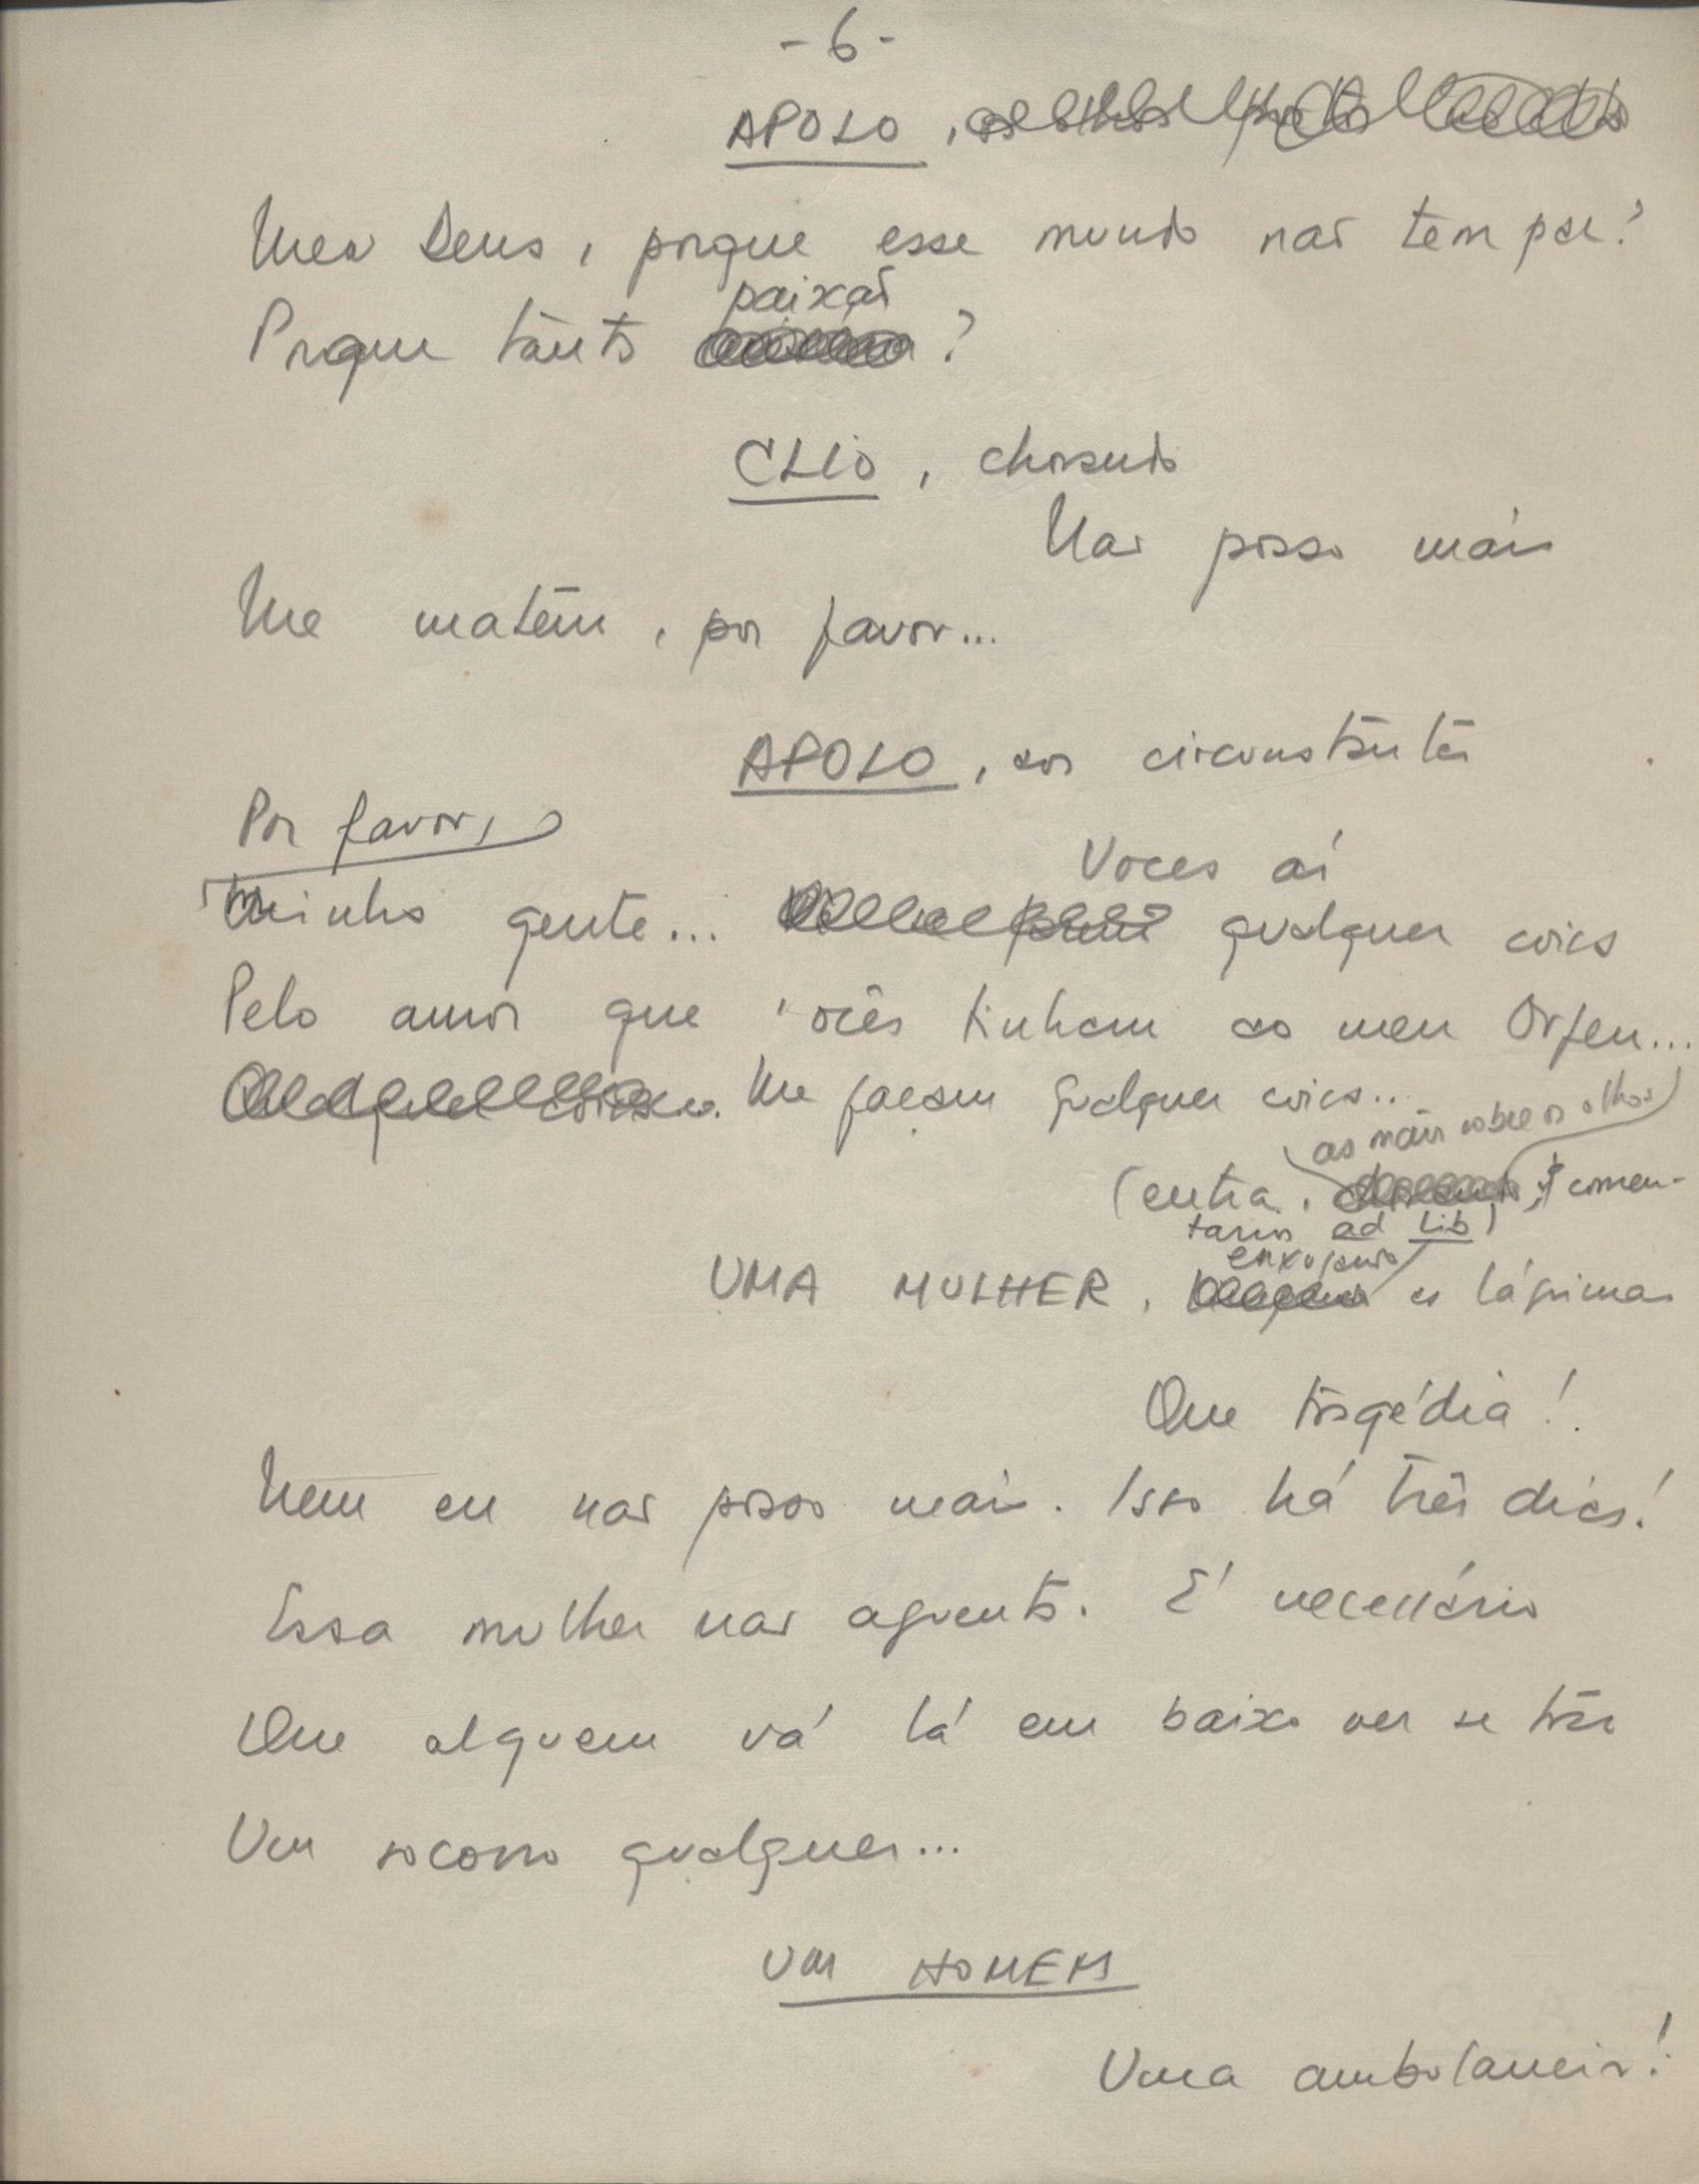 - 6 -
APOLO,
Meu Deus, porque esse mundo não tem paz?
paixão
Porque tanta ?
CLIO, chorando
Não posso mais
Me matem, por favor...
APOLO, aos circunstantes
Por favor,
Voces aí
minha gente... qualquer coisa
Pelo amor que vocês tinham ao meu Orfeu...
Me façam qualquer coisa...
as mãos sobre os olhos
(entra, ; comen-
tarios ad lib)
enxugando
UMA MULHER, as lágrimas
Que tragédia!
Nem eu não posso mais. Isso há três dias!
Essa mulher não aguenta. É necessário
Que alguem vá lá em baixo ver se traz
Um socorro qualquer...
UM HOMEM
Uma ambulancia!